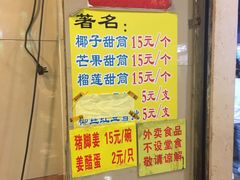 著名:
椰子甜筒 15元/个
芒果甜筒 15元/个
榴莲甜筒 15元/个
5元/支
5元/支
猪脚姜 15元/碗
姜醋蛋 2元/只
外卖食品
不设堂食
敬请谅解